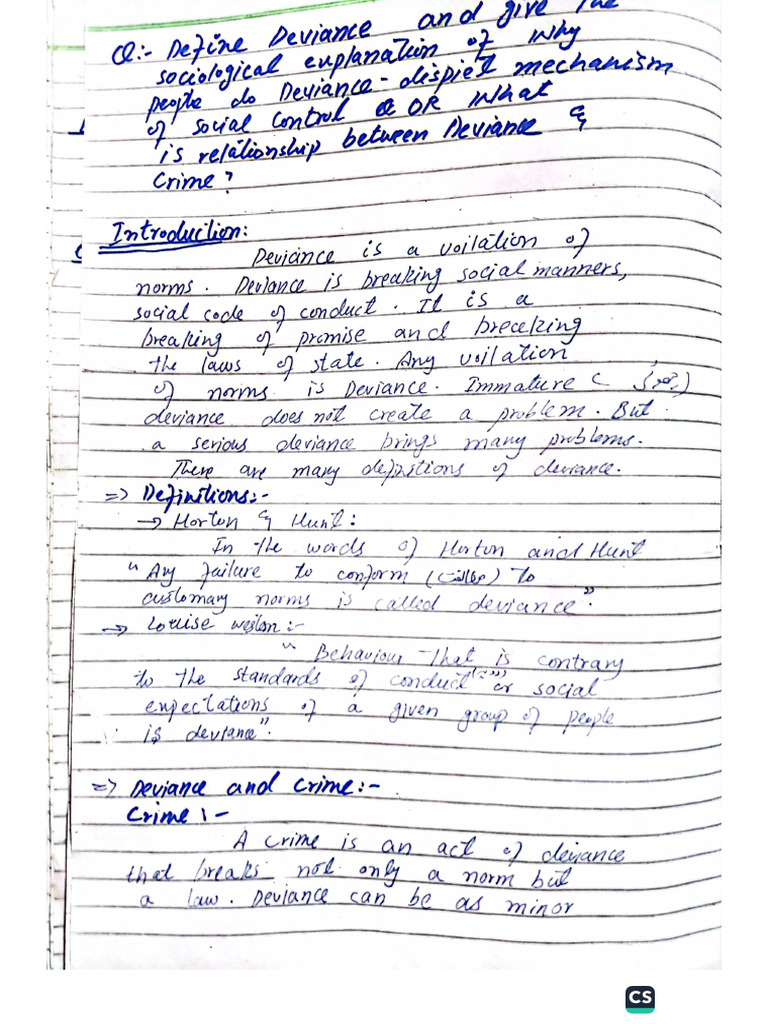 Q:- Define Deviance and give the
sociological explanation of why
people do Deviance-dispiet mechanism
of social control OR What
is relationship between Deviance &
Crime?
Introduction:
Deviance is a voilation of
norms. Deviance is breaking social manners,
social code of conduct. It is a
breaking of promise and breceking
the laws of state. Any voilation
of norms is Deviance. Immature (
deviance does not create a problem. But
a serious deviance brings many problems.
There are many defintions of deviance.
=> Definitions:-
→ Horton & Hunt:
In the words of Horton and Hunt
"Any failure to conform (مطابقت) to
customary norms is called deviance".
→ Louise weston:-
"Behaviour that is contrary
to the standards of conduct or social
expectations of a given group of people
is deviance".
=> Deviance and Crime:-
Crime:-
A crime is an act of deviance
that breaks not only a norm but
a law. Deviance can be as minor
CS